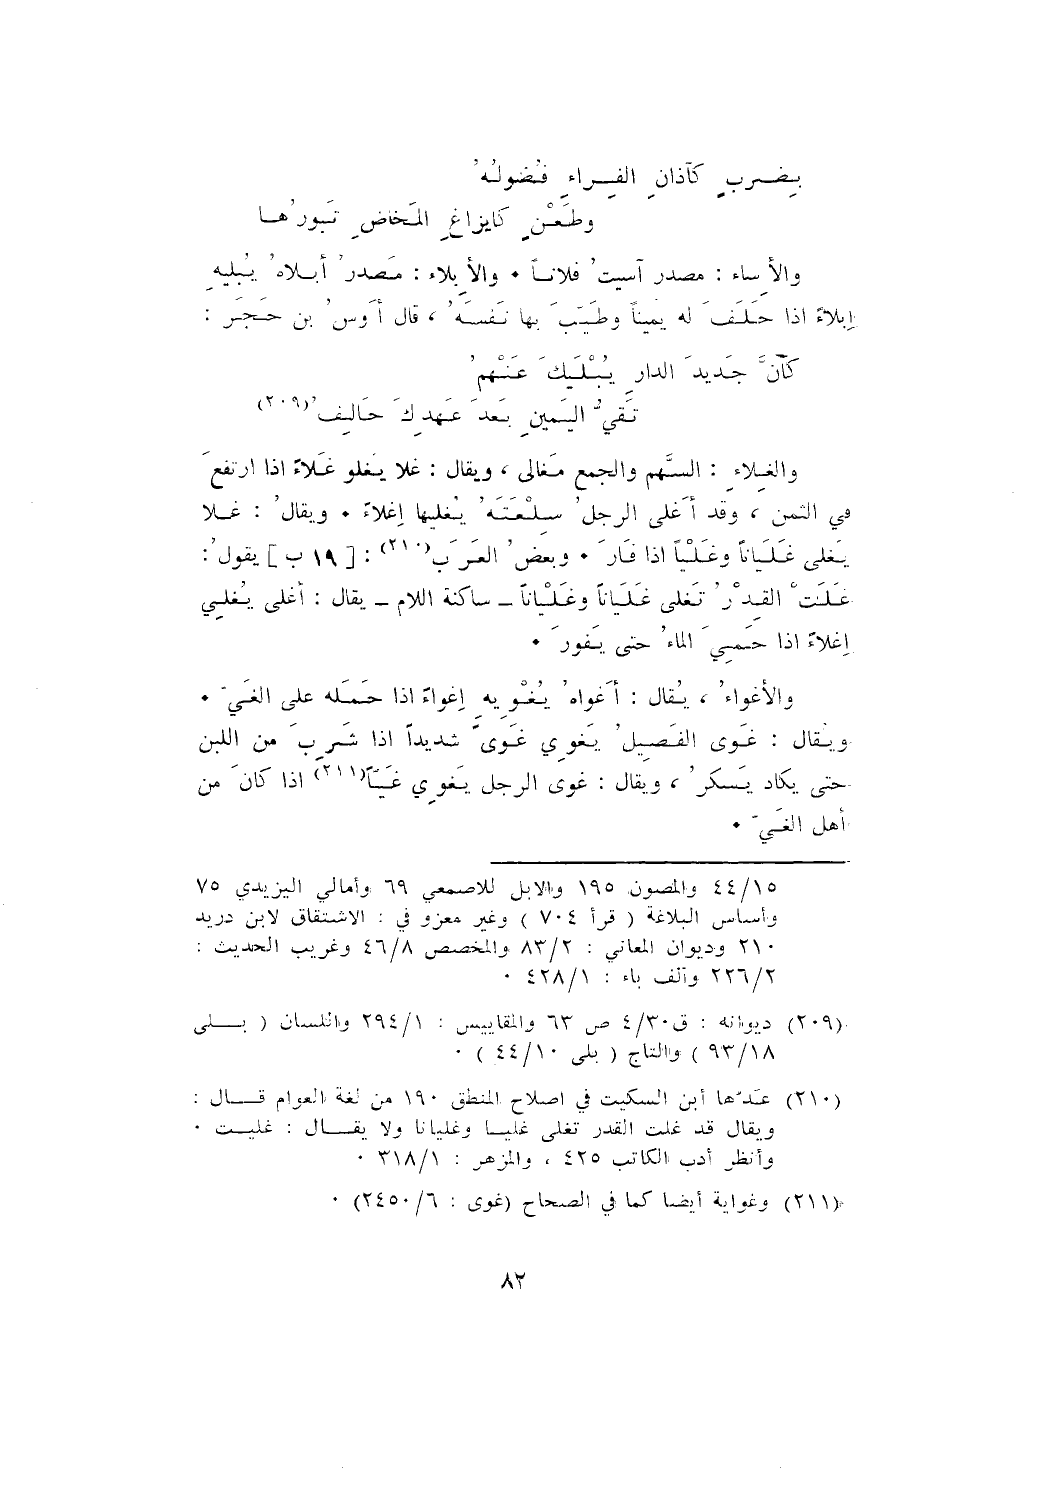 بِضَربٍ كآذانِ الفِراءِ فُضُولُهُ
وطَعْنٍ كايزاغِ المَخاضِ تَبورُها
والأِساء : مصدر آسيتُ فلاناً . والأِبلاء : مَصدرُ أبلاهُ يُبليهِ
إبلاءً اذا حَلَفَ له يميناً وطَيَّبَ بها نَفسَهُ ، قال أَوسُ بن حَجَر :
كأَنَّ جَديدَ الدارِ يُبْلَيكَ عَنْهمُ
تَقيُّ اليَمينِ بَعدَ عَهدِكَ حَالِفُ(٢٠٩)
والغِلاءِ : السَّهم والجمع مَغالى ، ويقال : غلا يَغلو غَلاءً اذا ارتفعَ
في الثمن ، وقد أَغلى الرجلُ سِلْعَتَهُ يُغليها إغلاءً . ويقالُ : غلا
يَغلى غَلَياناً وغَلْياً اذا فَارَ . وبعضُ العَرَبِ(٢١٠) : [ ١٩ ب ] يقولُ :
غَلَتْ القِدْرُ تَغلى غَلَياناً وغَلْياناً ــ ساكنة اللام ــ يقال : أغلى يُغلي
إغلاءً اذا حَمِيَ الماءُ حتى يَفورَ .
والأغواءُ ، يُقال : أَغواهُ يُغْوِيه إغواءً اذا حَمَله على الغَيَ .
ويُقال : غَوى الفَصيلُ يَغوِي غَوىً شديداً اذا شَرِبَ من اللبن
حتى يكاد يَسكرُ ، ويقال : غوى الرجل يَغوِي غَيّاً(٢١١) اذا كانَ من
أهل الغَيَ .
٤٤/١٥ والمصون ١٩٥ والابل للاصمعي ٦٩ وأمالي اليزيدي ٧٥
وأساس البلاغة ( قرأ ٧٠٤ ) وغير معزو في : الاشتقاق لابن دريد
٢١٠ وديوان المعاني : ٨٣/٢ والمخصص ٤٦/٨ وغريب الحديث :
٢٢٦/٢ وألف باء : ٤٢٨/١ .
(٢٠٩) ديوانه : ق٤/٣٠ ص ٦٣ والمقاييس : ٢٩٤/١ واللسان ( بلى
٩٣/١٨ ) والتاج ( بلى ٤٤/١٠ ) .
(٢١٠) عَدّها أبن السكيت في اصلاح المنطق ١٩٠ من لغة العوام قال :
ويقال قد غلت القدر تغلى غليا وغليانا ولا يقال : غليت .
وأنظر أدب الكاتب ٤٢٥ ، والمزهر : ٣١٨/١ .
(٢١١) وغواية أيضا كما في الصحاح (غوى : ٢٤٥٠/٦) .
٨٢